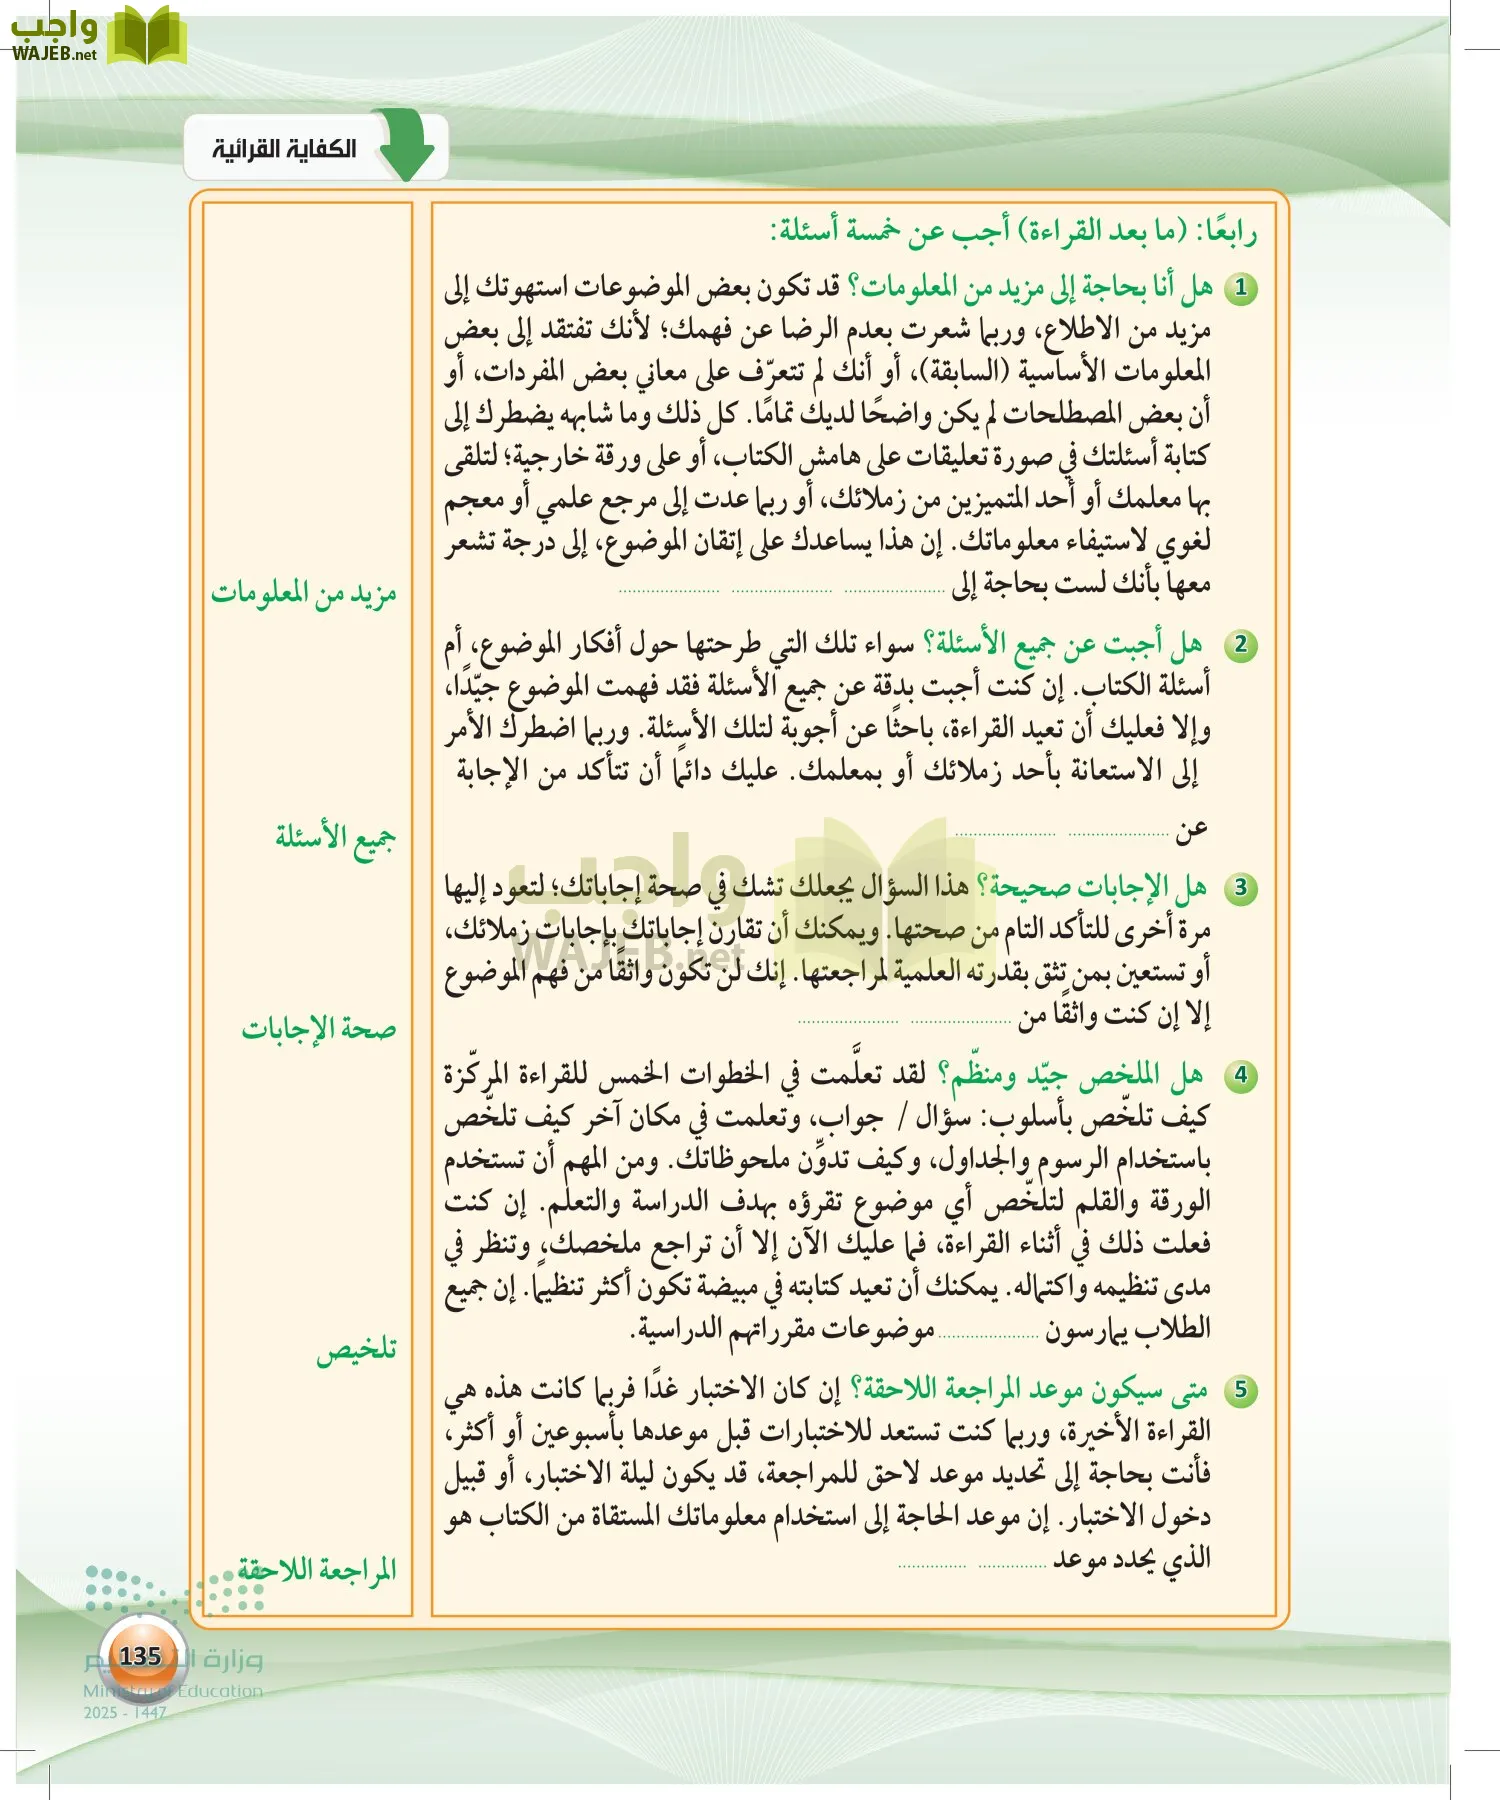 واجب
WAJEB.net
الكفاية القرائية
رابعًا: (ما بعد القراءة) أجب عن خمسة أسئلة:
1 هل أنا بحاجة إلى مزيد من المعلومات؟ قد تكون بعض الموضوعات استهوتك إلى
مزيد من الاطلاع، وربما شعرت بعدم الرضا عن فهمك؛ لأنك تفتقد إلى بعض
المعلومات الأساسية (السابقة)، أو أنك لم تتعرّف على معاني بعض المفردات، أو
أن بعض المصطلحات لم يكن واضحًا لديك تمامًا. كل ذلك وما شابهه يضطرك إلى
كتابة أسئلتك في صورة تعليقات على هامش الكتاب، أو على ورقة خارجية؛ لتلقى
بها معلمك أو أحد المتميزين من زملائك، أو ربما عدت إلى مرجع علمي أو معجم
لغوي لاستيفاء معلوماتك. إن هذا يساعدك على إتقان الموضوع، إلى درجة تشعر
معها بأنك لست بحاجة إلى ..................... ..................... .....................
مزيد من المعلومات
2 هل أجبت عن جميع الأسئلة؟ سواء تلك التي طرحتها حول أفكار الموضوع، أم
أسئلة الكتاب. إن كنت أجبت بدقة عن جميع الأسئلة فقد فهمت الموضوع جيّدًا،
وإلا فعليك أن تعيد القراءة، باحثًا عن أجوبة لتلك الأسئلة. وربما اضطرك الأمر
إلى الاستعانة بأحد زملائك أو بمعلمك. عليك دائمًا أن تتأكد من الإجابة
عن ..................... .....................
جميع الأسئلة
واجب
WAJEB.net
3 هل الإجابات صحيحة؟ هذا السؤال يجعلك تشك في صحة إجاباتك؛ لتعود إليها
مرة أخرى للتأكد التام من صحتها. ويمكنك أن تقارن إجاباتك بإجابات زملائك،
أو تستعين بمن تثق بقدرته العلمية لمراجعتها. إنك لن تكون واثقًا من فهم الموضوع
إلا إن كنت واثقًا من ..................... .....................
صحة الإجابات
4 هل الملخص جيّد ومنظّم؟ لقد تعلَّمت في الخطوات الخمس للقراءة المركّزة
كيف تلخّص بأسلوب: سؤال / جواب، وتعلمت في مكان آخر كيف تلخّص
باستخدام الرسوم والجداول، وكيف تدوِّن ملحوظاتك. ومن المهم أن تستخدم
الورقة والقلم لتلخّص أي موضوع تقرؤه بهدف الدراسة والتعلم. إن كنت
فعلت ذلك في أثناء القراءة، فما عليك الآن إلا أن تراجع ملخصك، وتنظر في
مدى تنظيمه واكتماله. يمكنك أن تعيد كتابته في مبيضة تكون أكثر تنظيمًا. إن جميع
الطلاب يمارسون ..................... موضوعات مقرراتهم الدراسية.
تلخيص
5 متى سيكون موعد المراجعة اللاحقة؟ إن كان الاختبار غدًا فربما كانت هذه هي
القراءة الأخيرة، وربما كنت تستعد للاختبارات قبل موعدها بأسبوعين أو أكثر،
فأنت بحاجة إلى تحديد موعد لاحق للمراجعة، قد يكون ليلة الاختبار، أو قبيل
دخول الاختبار. إن موعد الحاجة إلى استخدام معلوماتك المستقاة من الكتاب هو
الذي يحدد موعد ............... ...............
المراجعة اللاحقة
135
وزارة التعليم
Ministry of Education
2025 - 1447